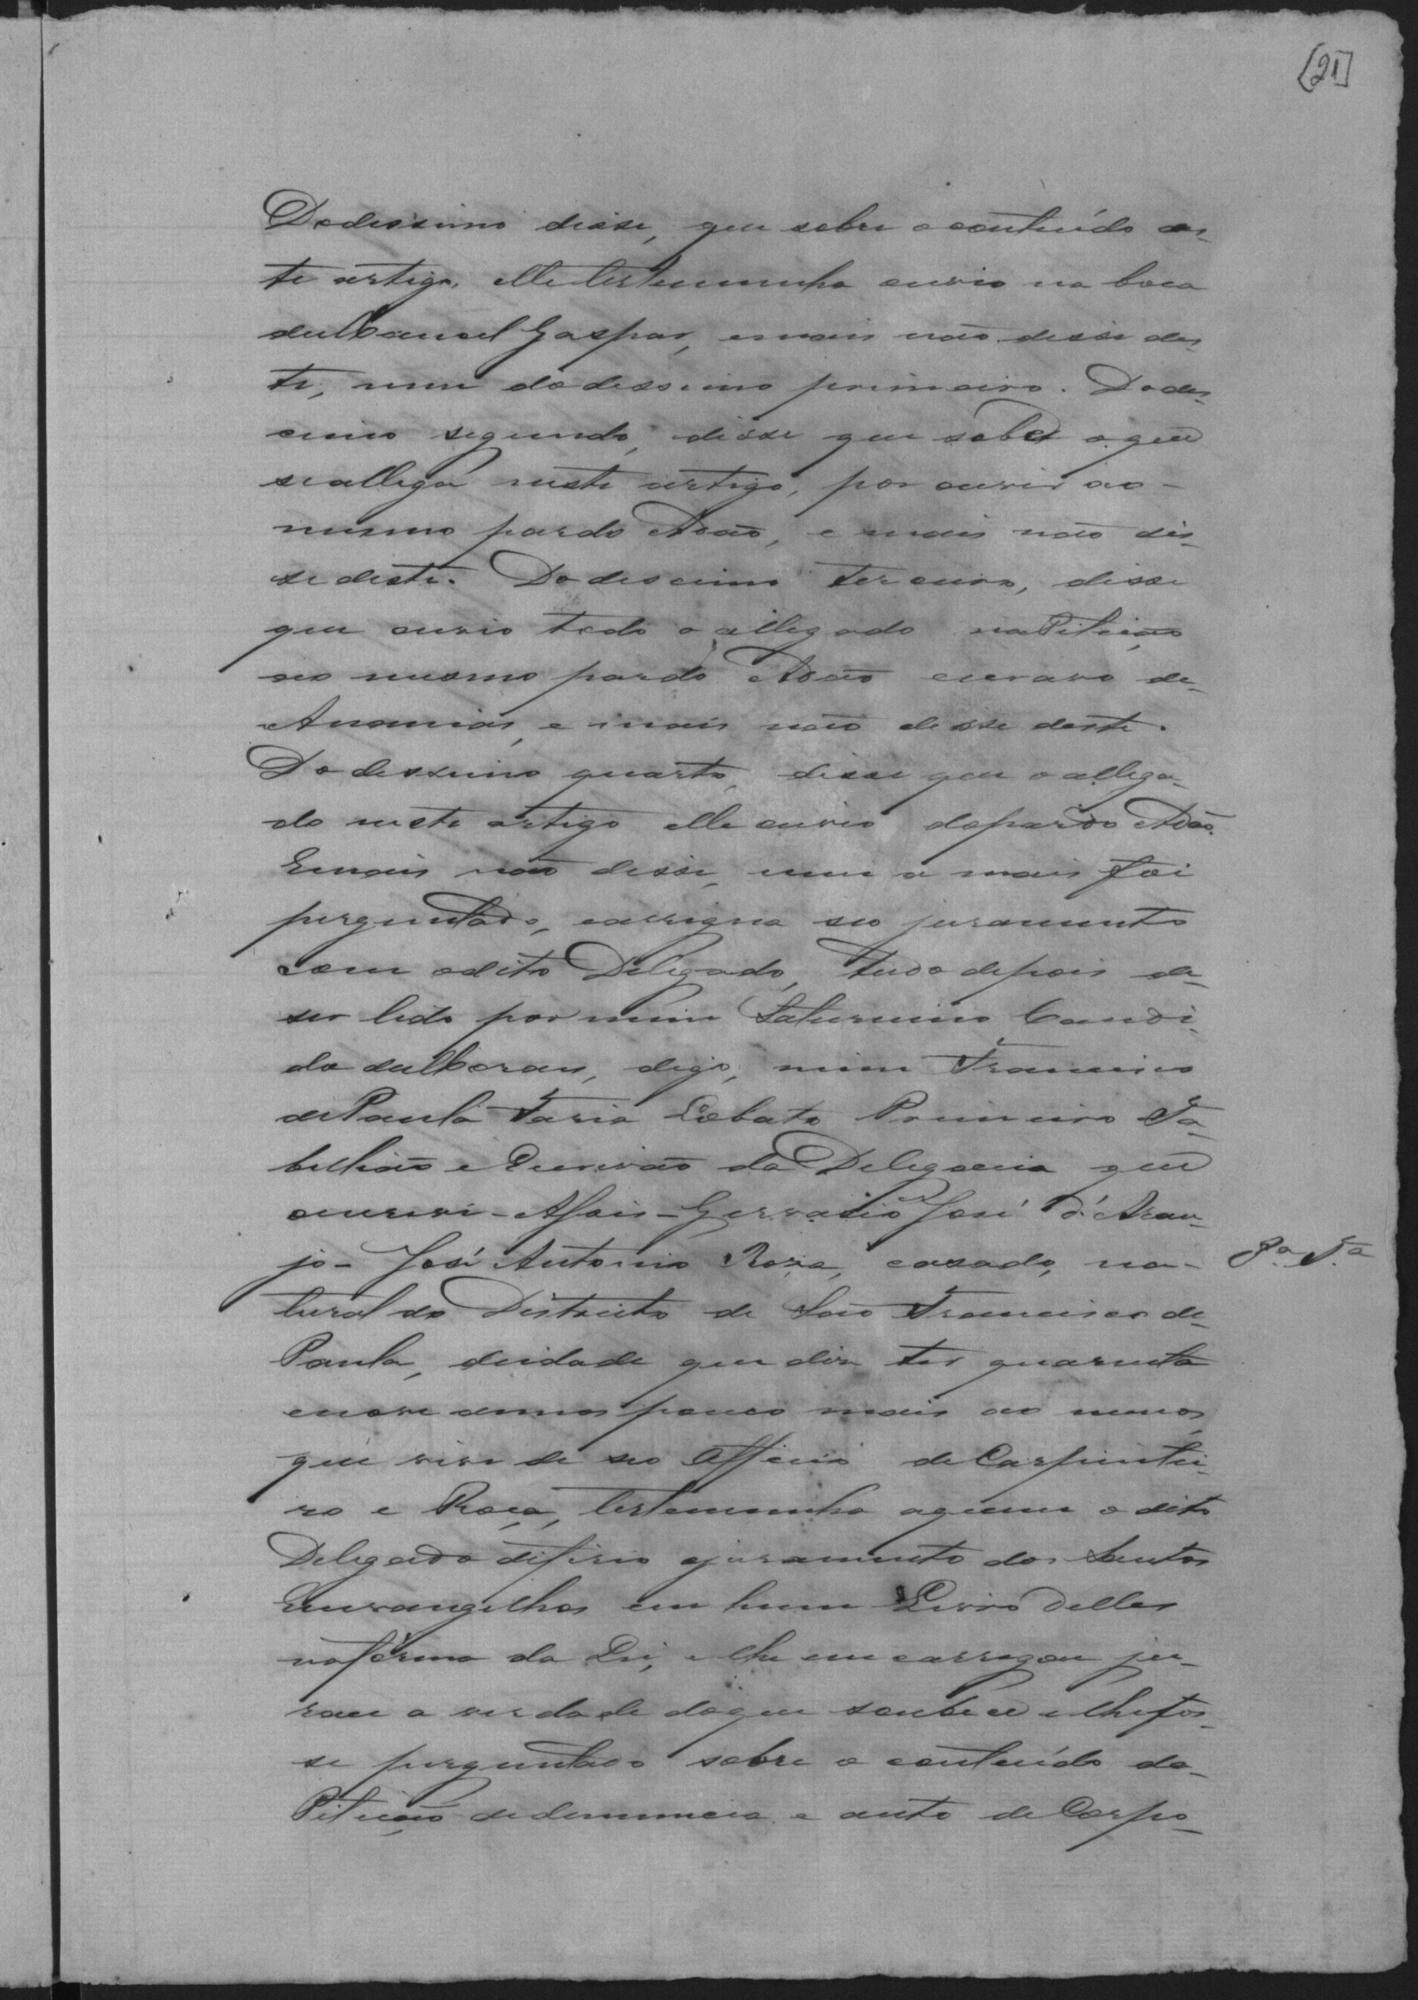 [21]
Dodessimo disse, que sobre o conteúdo des-
te artigo, elle testemunha ouvio na boca
de Manoel Gaspar, e mais não disse des-
te, nem do dessimo primeiro. Do des-
cimo segundo, disse que sabe o que
se allega neste artigo, por ouvir ao-
mesmo pardo Adão, e mais não dis-
se deste. Do descimo terceiro, disse
que ouvio todo o allegado na Petição
ao mesmo pardo Adão escravo de-
Ananias, e mais não disse deste.
Do dessimo quarto, disse que o allega-
do neste artigo elle ouvio do pardo Adão.
E mais não disse, nem a mais foi
perguntado, e assigna seo juramento
com o dito Delegado, tudo depois de-
ser lido por mim Saturnino Candi-
do de Moraes, digo, mim Francisco
de Paula Faria Lobato Primeiro Ta-
bellião e Escrivão da Delegacia que
o escrevi - Assis - Gervasio José d'Arau-
jo - José Antonio Roza, casado, na-
8.ª T.ª
tural do Districto de São Francisco de-
Paula, de idade que diz ter quarenta
e nove annos pouco mais ou menos,
que vive de seo Officio de Carpintei-
ro e Roça, testemunha a quem o dito
Delegado diferio o juramento dos Santos
Euvangelhos em hum Livro delles
na fórma da Lei, e lhe encarregou ju-
race a verdade do que soubece e lhe fos-
se perguntado sobre o conteúdo da-
Petição de denuncia e auto de Corpo-